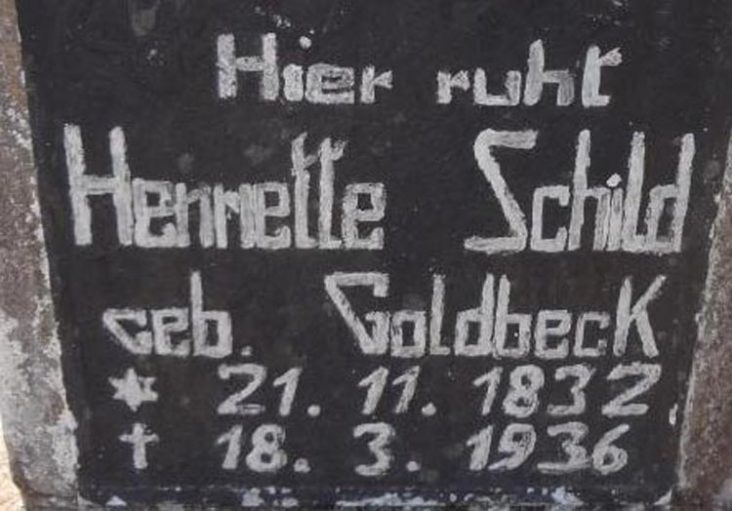 Hier ruht
Henriette Schild
geb. Goldbeck
* 21. 11. 1832.
† 18. 3. 1936